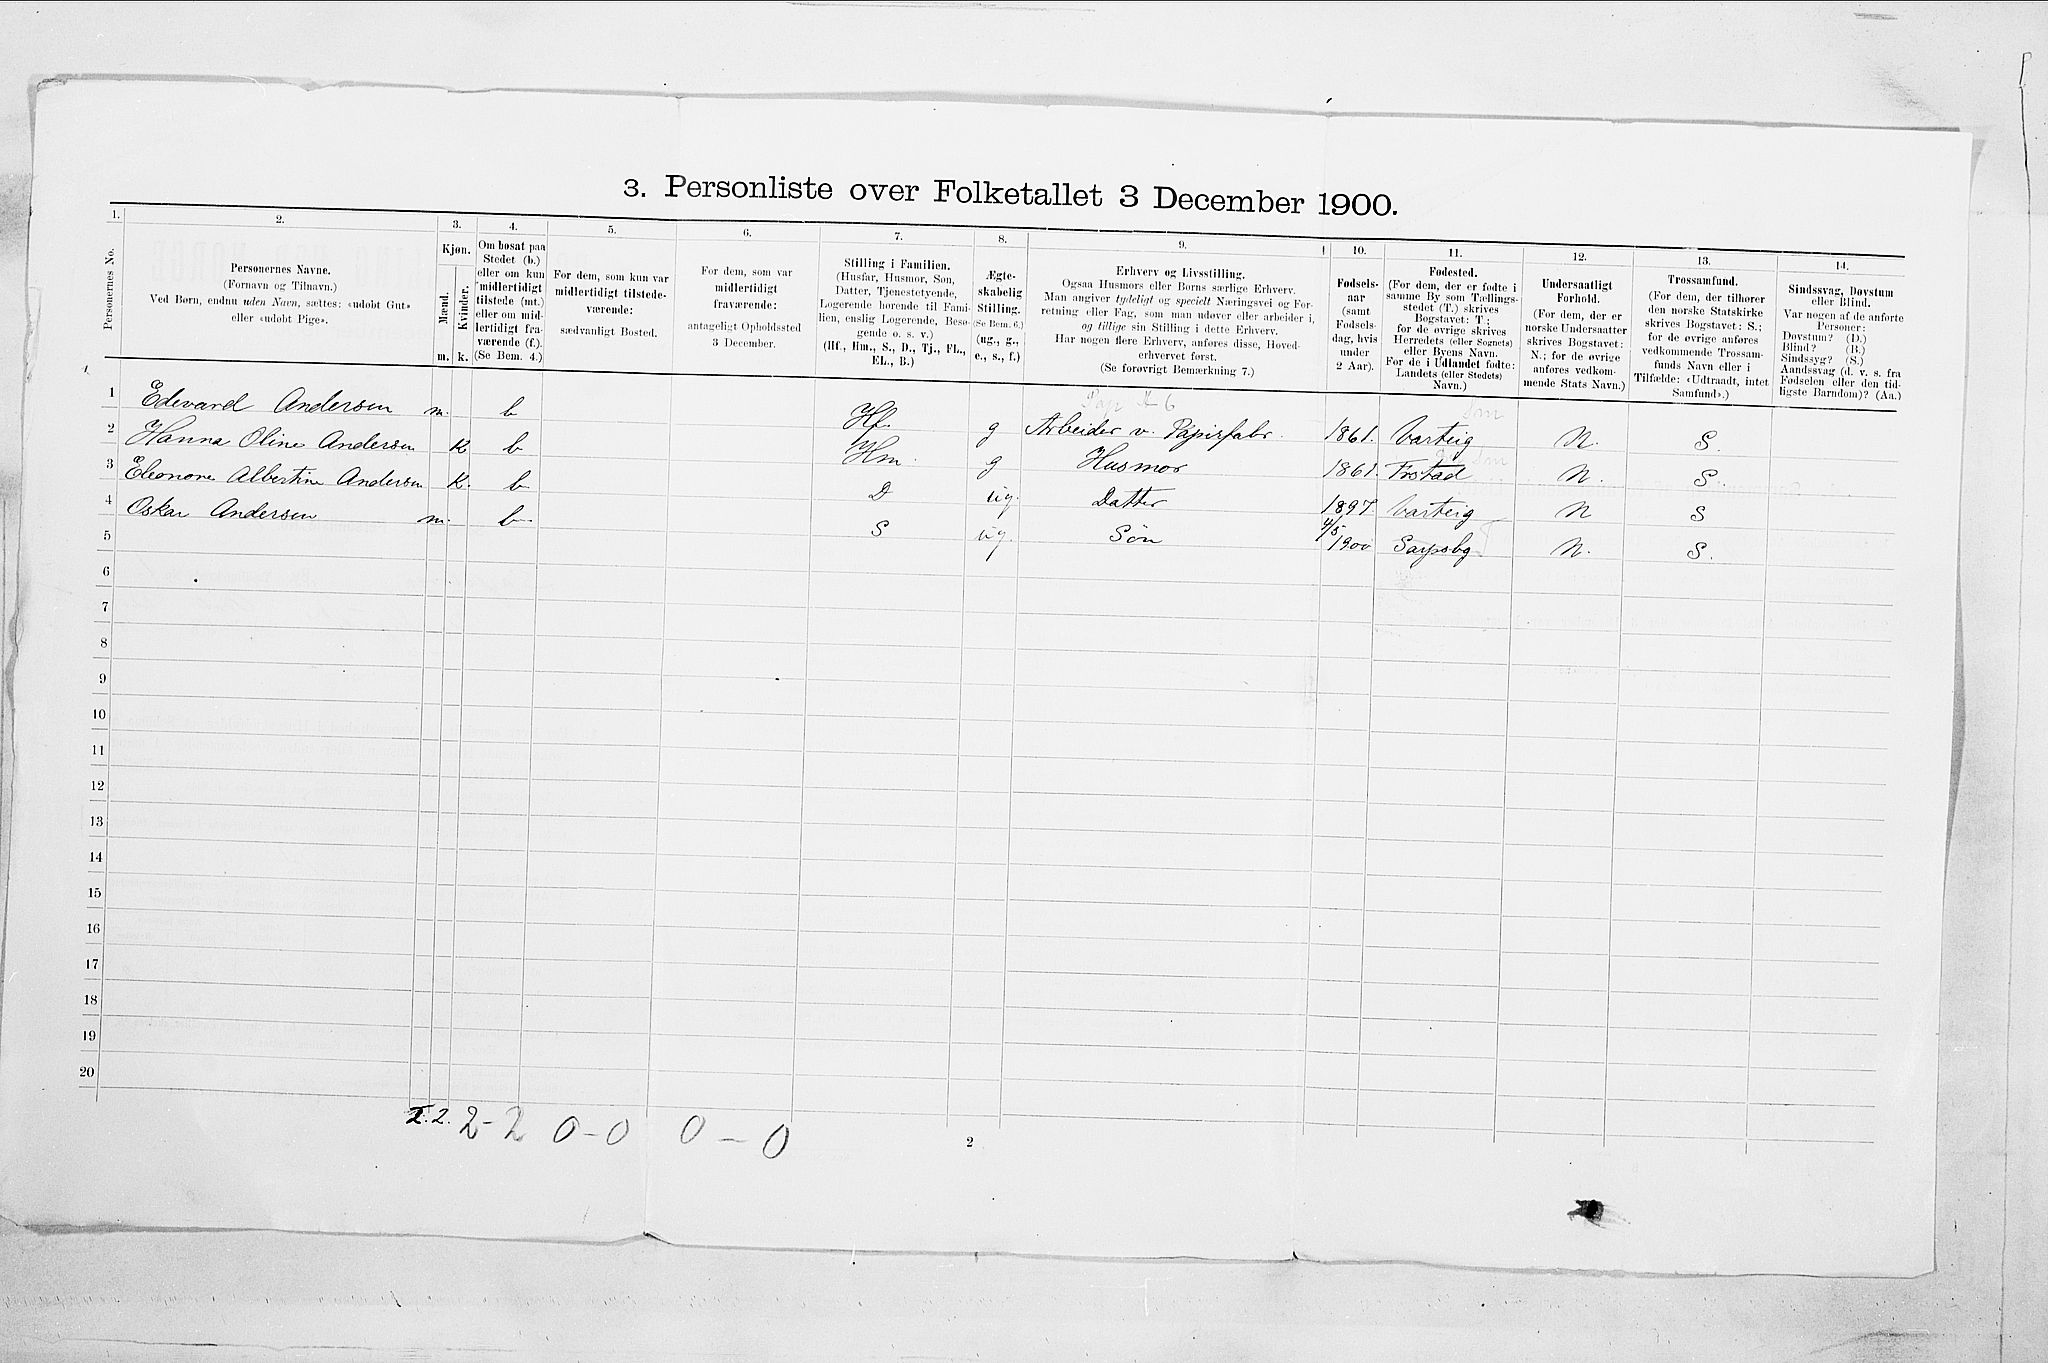 3. Personliste over Folketallet 3 December 1900.
1. 2. 3. 4. 5. 6. 7. 8. 9. 10. 11. 12. 13. 14.
Personernes No.
Personernes Navne.
(Fornavn og Tilnavn.)
Ved Børn, endnu uden Navn, sættes: «udobt Gut»
eller «udobt Pige».
Kjøn.
Mænd.
Kvinder.
m. k.
Om bosat paa
Stedet (b.)
eller om kun
midlertidigt
tilstede (mt.)
eller om mid-
lertidigt fra-
værende (f.).
(Se Bem. 4.)
For dem, som kun var
midlertidigt tilstede-
værende:
sædvanligt Bosted.
For dem, som var
midlertidigt
fraværende:
antageligt Opholdssted
3 December.
Stilling i Familien.
(Husfar, Husmor, Søn,
Datter, Tjenestetyende,
Logerende hørende til Fami-
lien, enslig Logerende, Besø-
gende o. s. v.)
(Hf., Hm., S., D., Tj., FL.,
EL., B.)
Ægte-
skabelig
Stilling.
(Se Bem. 6.)
(ug., g.,
e., s., f.)
Erhverv og Livsstilling.
Ogsaa Husmors eller Børns særlige Erhverv.
Man angiver tydeligt og specielt Næringsvei og For-
retning eller Fag, som man udøver eller arbeider i,
og tillige sin Stilling i dette Erhverv.
Har nogen flere Erhverv, anføres disse, Hoved-
erhvervet først.
(Se forøvrigt Bemærkning 7.)
Fødsels-
aar
(samt
Fødsels-
dag, hvis
under
2 Aar).
Fødested.
(For dem, der er fødte i
samme By som Tællings-
stedet (T.) skrives
Bogstavet: T.;
for de øvrige skrives
Herredets (eller Sognets)
eller Byens Navn.
For de i Udlandet fødte:
Landets (eller Stedets)
Navn.)
Undersaatligt
Forhold.
(For dem, der er
norske Undersaatter
skrives Bogstavet:
N.; for de øvrige
anføres vedkom-
mende Stats Navn.)
Trossamfund.
(For dem, der tilhører
den norske Statskirke
skrives Bogstavet: S.;
for de øvrige anføres
vedkommende Trossam-
funds Navn eller i
Tilfælde: «Udtraadt, intet
Samfund».)
Sindssvag, Døvstum
eller Blind.
Var nogen af de anførte
Personer:
Døvstum? (D.)
Blind? (B.)
Sindssyg? (S.)
Aandssvag (d. v. s. fra
Fødselen eller den tid-
ligste Barndom)? (Aa.)
1 Edevard Andersen m. b Hf. g Arbeider v. Papirfabr. 1861. Varteig N. S.
2 Hanna Oline Andersen K b Hm. g Husmor 1861. Frstad N. S.
3 Eleonore Albertine Andersen K. b D ug. Datter 1897. Varteig N S
4 Oskar Andersen m. b S ug. Søn 4/5 1900 Sarpsbg N. S.
5
6
7
8
9
10
11
12
13
14
15
16
17
18
19
20
2. 2. 2-2 0-0 0-0
2